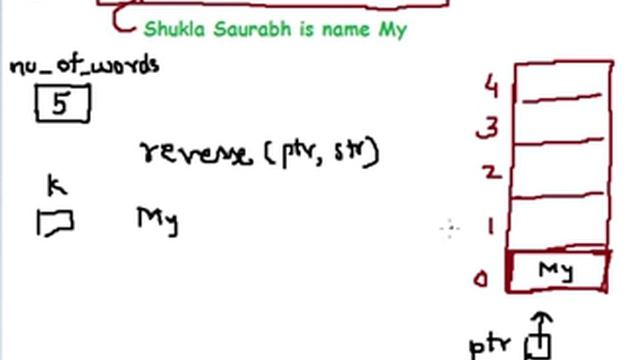 Shukla Saurabh is name My
nu_of_words
5
reverse (ptr, str)
k
My
4
3
2
1
0 My
ptr